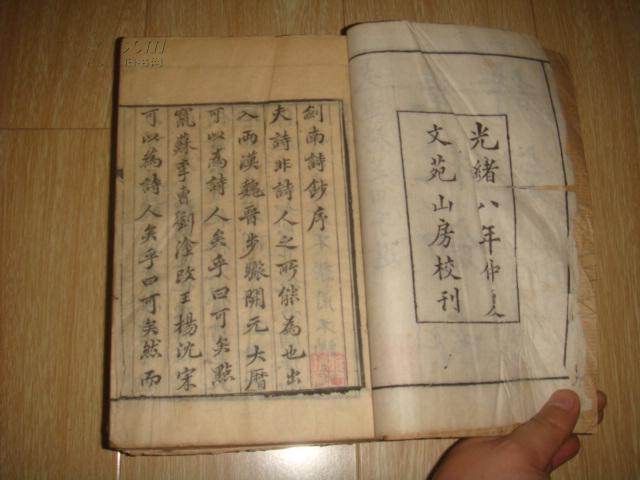 光緒八年仲夏
文苑山房校刊
劍南詩鈔序
夫詩非詩人之所能為也出
入兩漢魏晉步驟開元大曆
可以為詩人矣乎曰可矣點
竄蘇李曹劉塗改王楊沈宋
可以為詩人矣乎曰可矣然而